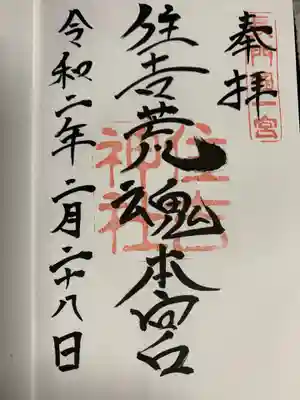 奉拝
長門國一宮
住吉荒魂本宮
住吉神社
令和二年二月二十八日